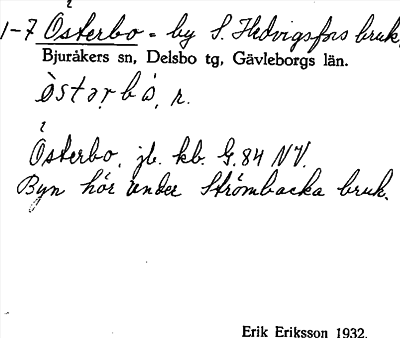 1-7 Österbo = by S. Hedvigsfors bruk,
Bjuråkers sn, Delsbo tg, Gävleborgs län.
östərbo, n.
Österbo, jb. kb. G. 84 NV.
Byn hör under Strömbacka bruk.
Erik Eriksson 1932.